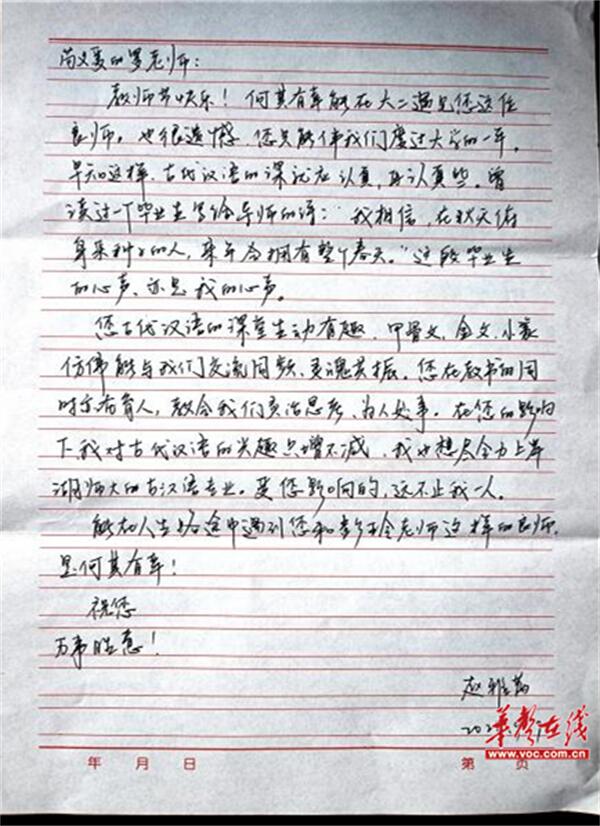 尚文爱的罗老师：
教师节快乐！何其有幸能在大二遇见您这位
良师。也很遗憾，您只能伴我们度过大学的一年。
早知这样，古代汉语的课就应认真，再认真些。曾
读过一个毕业生写给导师的话："我相信，在秋天俯
身采种子的人，来年会拥有整个春天。"这段毕业生
的心声，亦是我的心声。
您古代汉语的课堂生动有趣，甲骨文、金文、小篆
仿佛能与我们交流同频、灵魂共振。您在教书的同
时亦在育人，教会我们灵活思考、为人处事。在您的影响
下，我对古代汉语的兴趣只增不减，我也想尽全力上岸
湖师大的古汉语专业。受您影响的，远不止我一人。
能在人生路途中遇到您和老师这样的良师，
是何其有幸！
祝您
万事胜意！
赵雅
202
华声在线
www.voc.com.cn
年 月 日 第 页